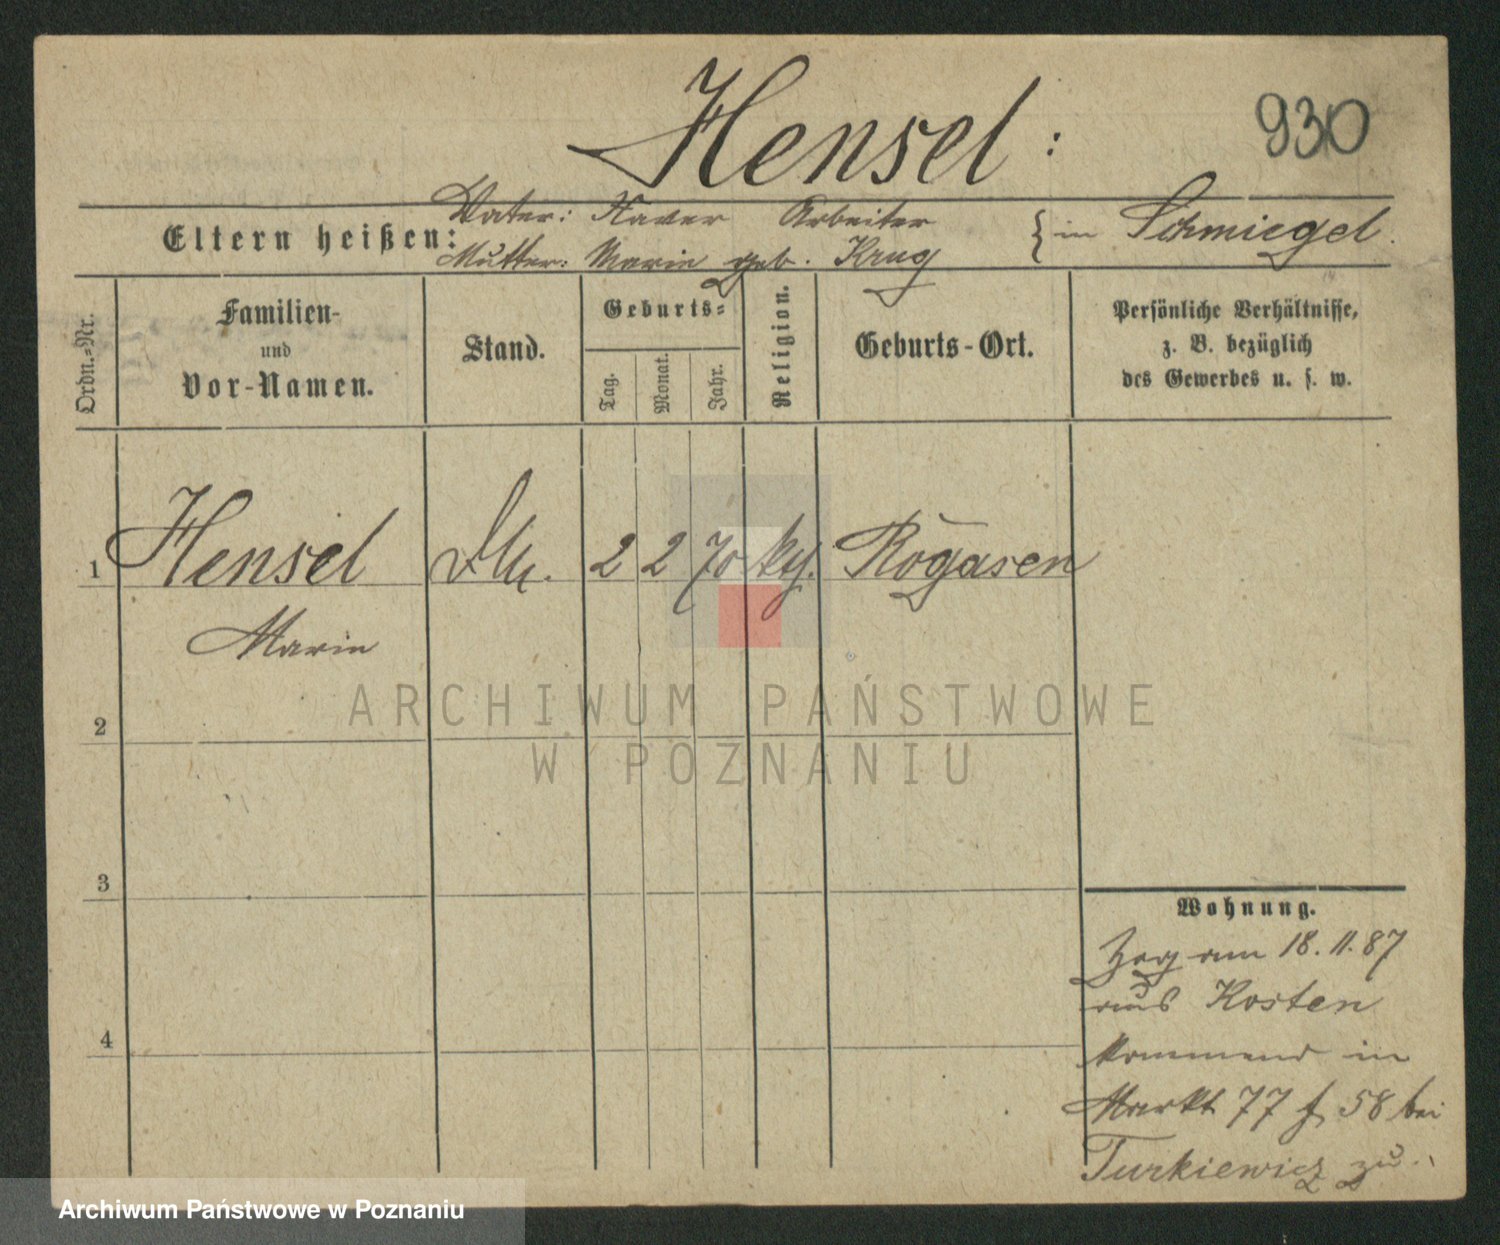 Hensel:
930
Eltern heißen:
Vater: Xaver Arbeiter
Mutter: Marie geb. Krug
} in Schmiegel.
Ordn.=Nr.
Familien-
und
Vor-Namen.
Stand.
Geburts=
Tag.
Monat.
Jahr.
Religion.
Geburts-Ort.
Persönliche Verhältnisse,
z. B. bezüglich
des Gewerbes u. s. w.
1 Hensel 2 2 70 Rogasen
Marie
2
3
4
Wohnung.
Zog am 18.11.87
aus Kosten
kommend in
Markt 77 58 bei
Turkiewicz zu.
ARCHIWUM PAŃSTWOWE
W POZNANIU
Archiwum Państwowe w Poznaniu